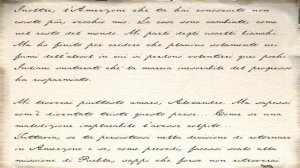 Inoltre, l'Amazzone che tu hai conosciuto non
esiste più, vecchio mio. Le cose sono cambiate, come
nel resto del mondo. Mi parli degli uccelli bianchi.
Ma ho finito per credere che planino solamente nei
fiumi dell'aldilà in cui si perdono volentieri quei pochi
Indiani sventurati che la marcia inesorabile del progresso
ha risparmiato.
Mi troverai piuttosto amaro, Alexandre. Ma sapessi
com'è diventato triste questo paese. Come se una
maledizione implacabile l'avesse colpito.
Tuttavia, se tu persistessi nella decisione di ritornare
in Amazzone e se, come prevedi, facessi scalo alla
missione di Puebla, sappi che forse non ritroverai